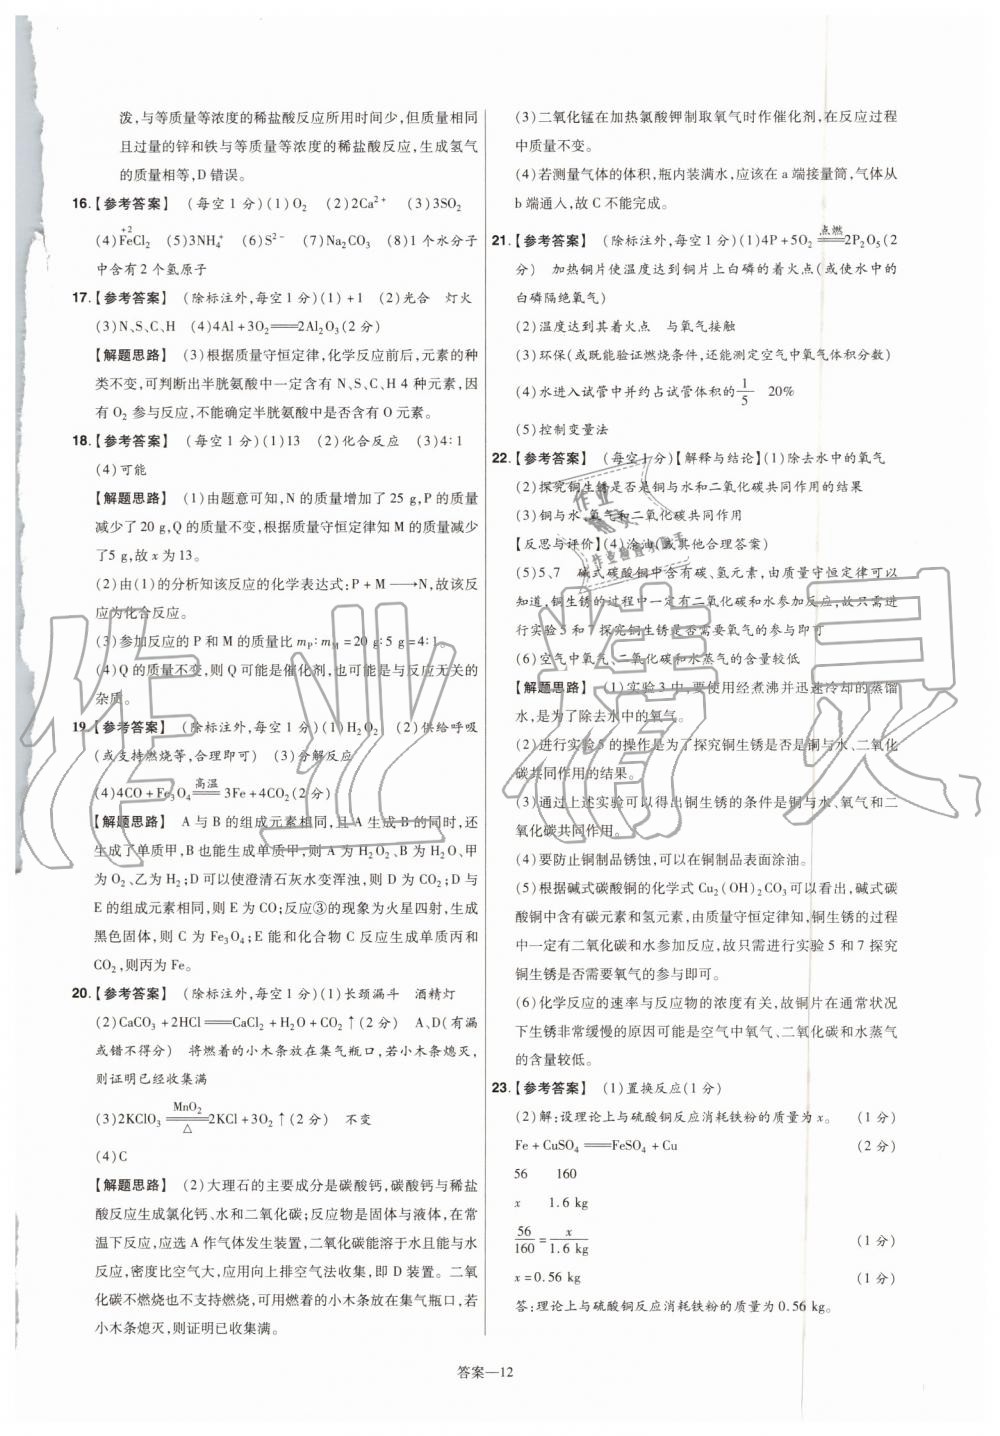 泼,与等质量等浓度的稀盐酸反应所用时间少,但质量相同
且过量的锌和铁与等质量等浓度的稀盐酸反应,生成氢气
的质量相等,D 错误。
16.【参考答案】 (每空 1 分)(1)O₂ (2)2Ca²⁺ (3)3SO₂
(4)Fe(+2)Cl₂ (5)3NH₄⁺ (6)S²⁻ (7)Na₂CO₃ (8)1 个水分子
中含有 2 个氢原子
17.【参考答案】 (除标注外,每空 1 分)(1)+1 (2)光合 灯火
(3)N、S、C、H (4)4Al+3O₂══2Al₂O₃(2 分)
【解题思路】 (3)根据质量守恒定律,化学反应前后,元素的种
类不变,可判断出半胱氨酸中一定含有 N、S、C、H 4 种元素,因
有 O₂ 参与反应,不能确定半胱氨酸中是否含有 O 元素。
18.【参考答案】 (每空 1 分)(1)13 (2)化合反应 (3)4∶1
(4)可能
【解题思路】 (1)由题意可知,N 的质量增加了 25 g,P 的质量
减少了 20 g,Q 的质量不变,根据质量守恒定律知 M 的质量减少
了5 g,故 x 为 13。
(2)由(1)的分析知该反应的化学表达式:P+M⟶N,故该反
应为化合反应。
(3)参加反应的 P 和 M 的质量比 mP∶mM=20 g∶5 g=4∶1。
(4)Q 的质量不变,则 Q 可能是催化剂,也可能是与反应无关的
杂质。
19.【参考答案】 (除标注外,每空 1 分)(1)H₂O₂ (2)供给呼吸
(或支持燃烧等,合理即可) (3)分解反应
(4)4CO+Fe₃O₄═高温═3Fe+4CO₂(2 分)
【解题思路】 A 与 B 的组成元素相同,且 A 生成 B 的同时,还
生成了单质甲,B 也能生成单质甲,则 A 为 H₂O₂、B 为 H₂O、甲
为 O₂、乙为 H₂;D 可以使澄清石灰水变浑浊,则 D 为 CO₂;D 与
E 的组成元素相同,则 E 为 CO;反应③的现象为火星四射,生成
黑色固体,则 C 为 Fe₃O₄;E 能和化合物 C 反应生成单质丙和
CO₂,则丙为 Fe。
20.【参考答案】 (除标注外,每空 1 分)(1)长颈漏斗 酒精灯
(2)CaCO₃+2HCl══CaCl₂+H₂O+CO₂↑(2 分) A、D(有漏
或错不得分) 将燃着的小木条放在集气瓶口,若小木条熄灭,
则证明已经收集满
(3)2KClO₃═MnO₂/△═2KCl+3O₂↑(2 分) 不变
(4)C
【解题思路】 (2)大理石的主要成分是碳酸钙,碳酸钙与稀盐
酸反应生成氯化钙、水和二氧化碳;反应物是固体与液体,在常
温下反应,应选 A 作气体发生装置,二氧化碳能溶于水且能与水
反应,密度比空气大,应用向上排空气法收集,即 D 装置。二氧
化碳不燃烧也不支持燃烧,可用燃着的小木条放在集气瓶口,若
小木条熄灭,则证明已收集满。
(3)二氧化锰在加热氯酸钾制取氧气时作催化剂,在反应过程
中质量不变。
(4)若测量气体的体积,瓶内装满水,应该在 a 端接量筒,气体从
b 端通入,故 C 不能完成。
21.【参考答案】 (除标注外,每空 1 分)(1)4P+5O₂═点燃═2P₂O₅(2
分) 加热铜片使温度达到铜片上白磷的着火点(或使水中的
白磷隔绝氧气)
(2)温度达到其着火点 与氧气接触
(3)环保(或既能验证燃烧条件,还能测定空气中氧气体积分数)
(4)水进入试管中并约占试管体积的1/5 20%
(5)控制变量法
22.【参考答案】 (每空 1 分)【解释与结论】(1)除去水中的氧气
(2)探究铜生锈是否是铜与水和二氧化碳共同作用的结果
(3)铜与水、氧气和二氧化碳共同作用
【反思与评价】(4)涂油(或其他合理答案)
(5)5、7 碱式碳酸铜中含有碳、氢元素,由质量守恒定律可以
知道,铜生锈的过程中一定有二氧化碳和水参加反应,故只需进
行实验 5 和 7 探究铜生锈是否需要氧气的参与即可
(6)空气中氧气、二氧化碳和水蒸气的含量较低
【解题思路】 (1)实验 3 中,要使用经煮沸并迅速冷却的蒸馏
水,是为了除去水中的氧气。
(2)进行实验 5 的操作是为了探究铜生锈是否是铜与水、二氧化
碳共同作用的结果。
(3)通过上述实验可以得出铜生锈的条件是铜与水、氧气和二
氧化碳共同作用。
(4)要防止铜制品锈蚀,可以在铜制品表面涂油。
(5)根据碱式碳酸铜的化学式 Cu₂(OH)₂CO₃可以看出,碱式碳
酸铜中含有碳元素和氢元素,由质量守恒定律知,铜生锈的过程
中一定有二氧化碳和水参加反应,故只需进行实验 5 和 7 探究
铜生锈是否需要氧气的参与即可。
(6)化学反应的速率与反应物的浓度有关,故铜片在通常状况
下生锈非常缓慢的原因可能是空气中氧气、二氧化碳和水蒸气
的含量较低。
23.【参考答案】 (1)置换反应(1 分)
(2)解:设理论上与硫酸铜反应消耗铁粉的质量为 x。 (1 分)
Fe+CuSO₄══FeSO₄+Cu (2 分)
56 160
x 1.6 kg
56/160=x/1.6 kg (1 分)
x=0.56 kg (1 分)
答:理论上与硫酸铜反应消耗铁粉的质量为 0.56 kg。
答案—12
作业精灵